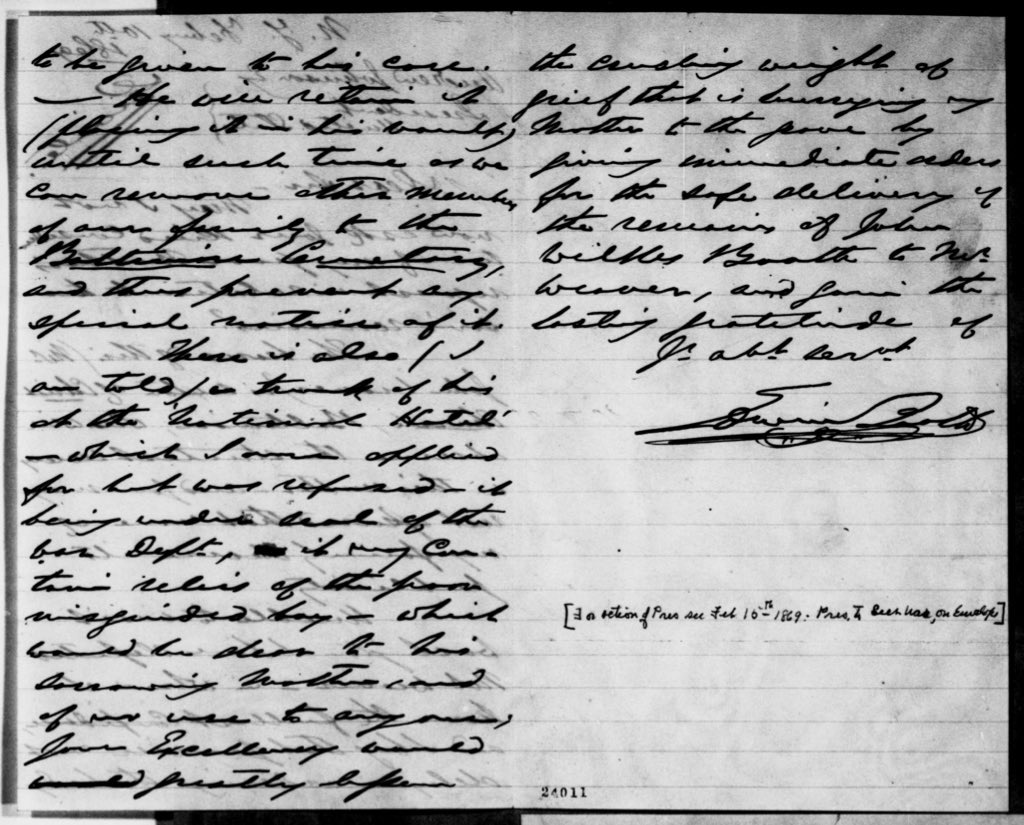 to be given to his care.
— He will retain it
(placing it in his vault,)
until such time as we
can remove other members
of our family to the
Baltimore Cemetery,
and thus prevent any
special notice of it.
There is also (I
am told) a trunk of his
at the National Hotel
— which I once applied
for but was refused — it
being under seal of the
War Dept., it may con-
tain relics of the poor
misguided boy — which
would be dear to his
sorrowing Mother, and
of no use to anyone;
Your Excellency would
would greatly lessen
the crushing weight of
grief that is hurrying my
Mother to the grave by
giving immediate orders
for the safe delivery of
the remains of John
Wilkes Booth to Mr.
Weaver, and gain the
lasting gratitude of
Yr. obt. servt.
Edwin Booth
[For action of Pres see Feb 15th 1869. Pres. to on Envelope]
24011
N. Y. Feby 10th
1869
Andrew Johnson